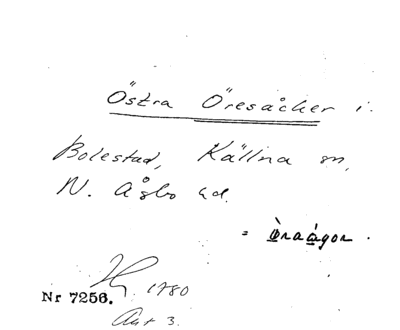 Östra Öresåcker i.
Bolestad, Källna sn,
N. Åsbo hd.
= Öraågor.
1780
Nr 7256.
Akt 3.